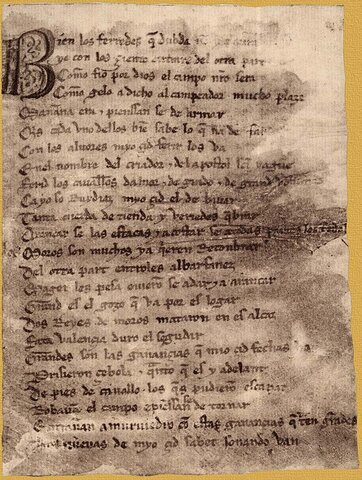 Bien los ferredes q̃ dubda nõ
yo con los ciento entrare del otra part
Como fio por dios el campo nr̃o sera
Como gelo a dicho al campeador mucho plaze
Mañana era pienssan se de armar
Quis cada vno dellos bie sabe lo q̃ ha de far
Con los aluores myo çid ferir los va
Enel nombre del criador del apostol
ferid los cauall̃os damor de grado de grand voluntad
Ca yo so Ruydiaz myo çid el de biuar
Tanta cuerda de tienda y veriedes q̃brar
Arancar se las estacas acostar se atodas
Moros son muchos ya q̃eren Recombrar
Del otra part entroles albarfanez
Mager les pesa ouierõ se adar a arancar
Grand es el gozo q̃ va por es logar
Dos Reyes de moros mataron en es alcaz
fata valencia duro el segudar
Grandes son las ganancias q̃ mio çid fechas a
Prisieron çebola q̃nto q̃ es y adelant
De pies de cauallo los q̃s pudierõ escapar
Robauã el campo epienssan se de tornar
Entrauan amuruiedro cõ estas ganancias q̃ traen grandes
Las nueuas de myo çid sabet sonando van